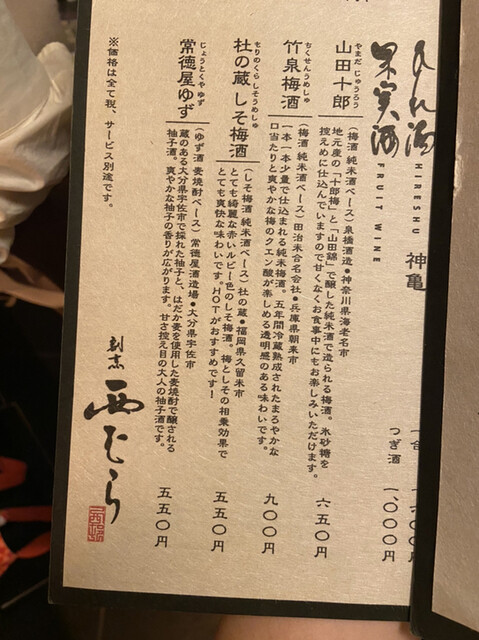 ひれ酒
HIRESHU
神亀
つぎ酒 一、〇〇〇円
果実酒
FRUIT WINE
やまだ じゅうろう
山田十郎
(梅酒 純米酒ベース)泉橋酒造●神奈川県海老名市
地元産の「十郎梅」と「山田錦」で醸した純米酒で造られる梅酒。氷砂糖を
控えめに仕込んでいますので甘くなくお食事中にもお楽しみいただけます。
六五〇円
ちくせんうめしゅ
竹泉梅酒
(梅酒 純米酒ベース)田治米合名会社●兵庫県朝来市
一本一本少量で仕込まれる純米梅酒。五年間冷蔵熟成されたまろやかな
口当たりと爽やかな梅のクエン酸が楽しめる透明感のある味わいです。
九〇〇円
もりのくら しそうめしゅ
杜の蔵 しそ梅酒
(しそ梅酒 純米酒ベース)杜の蔵●福岡県久留米市
とても綺麗な赤いルビー色のしそ梅酒。梅としその相乗効果で
とても爽快な味わいです。HOTがおすすめです!
五五〇円
じょうとくや ゆず
常徳屋ゆず
(ゆず酒 麦焼酎ベース)常徳屋酒造場●大分県宇佐市
蔵のある大分県宇佐市で採れた柚子と、はだか麦を使用した麦焼酎で醸される
柚子酒。爽やかな柚子の香りが広がります。甘さ控え目の大人の柚子酒です。
五五〇円
※価格は全て税、サービス別途です。
割烹
西むら